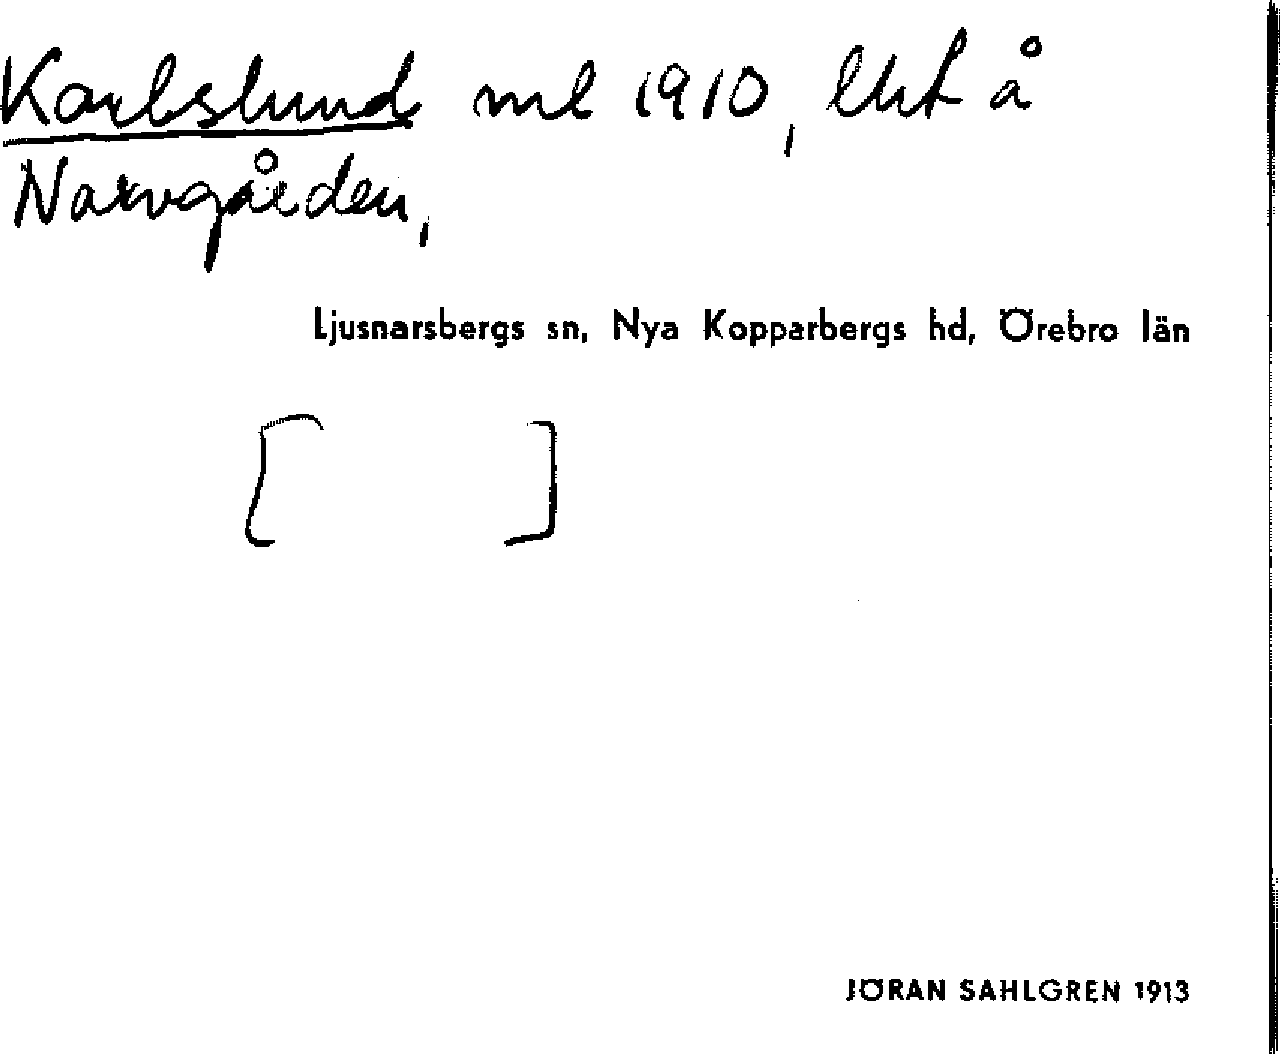 Karlslund ml 1910, lht å
Narvgården,
Ljusnarsbergs sn, Nya Kopparbergs hd, Örebro län
[ ]
JÖRAN SAHLGREN 1913